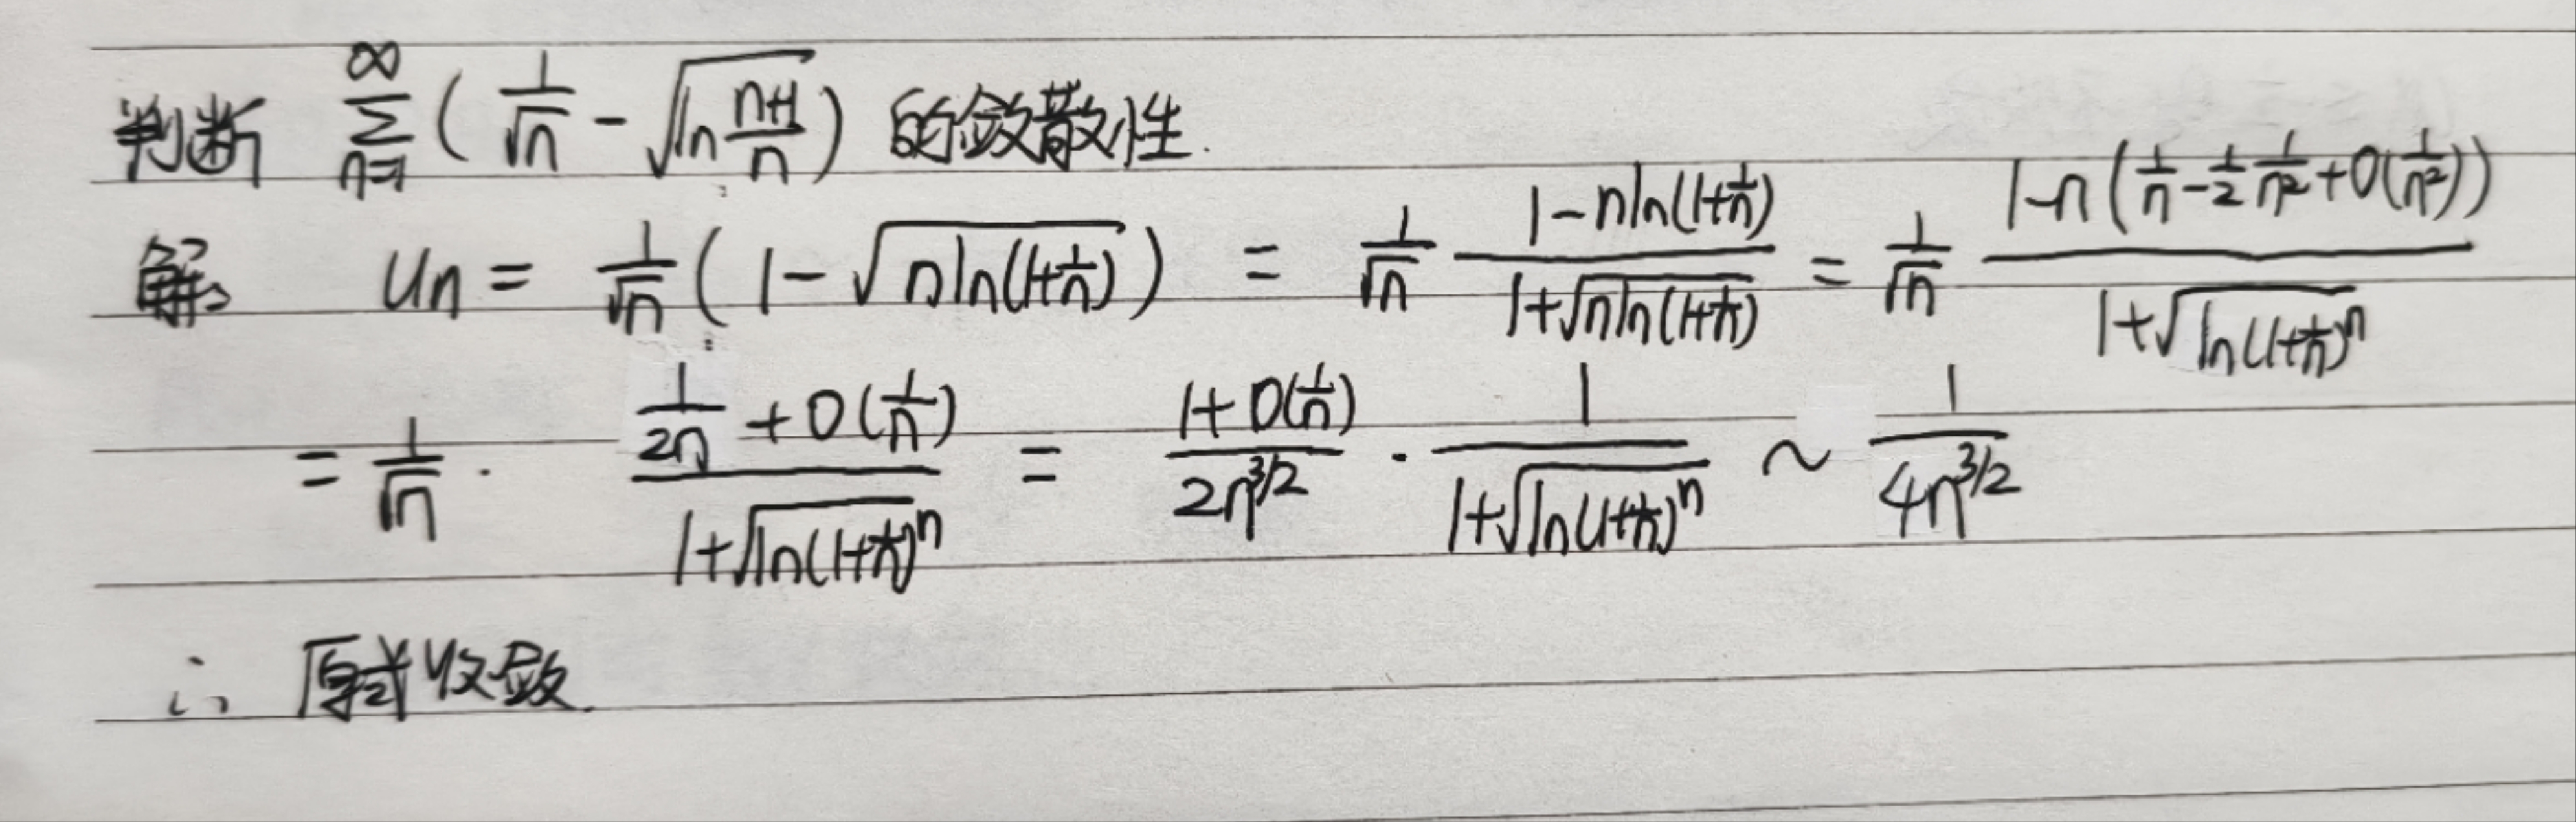 判断 $\sum_{n=1}^{\infty} ( \frac{1}{\sqrt{n}} - \sqrt{\ln \frac{n+1}{n}} )$ 的敛散性.
解: $U_n = \frac{1}{\sqrt{n}} ( 1 - \sqrt{n\ln(1+\frac{1}{n})} ) = \frac{1}{\sqrt{n}} \frac{1-n\ln(1+\frac{1}{n})}{1+\sqrt{n\ln(1+\frac{1}{n})}} = \frac{1}{\sqrt{n}} \frac{1-n(\frac{1}{n}-\frac{1}{2}\frac{1}{n^2}+O(\frac{1}{n^2}))}{1+\sqrt{\ln(1+\frac{1}{n})^n}}$
$= \frac{1}{\sqrt{n}} \cdot \frac{\frac{1}{2n}+O(\frac{1}{n})}{1+\sqrt{\ln(1+\frac{1}{n})^n}} = \frac{1+O(\frac{1}{n})}{2n^{3/2}} \cdot \frac{1}{1+\sqrt{\ln(1+\frac{1}{n})^n}} \sim \frac{1}{4n^{3/2}}$
∴ 原式收敛.